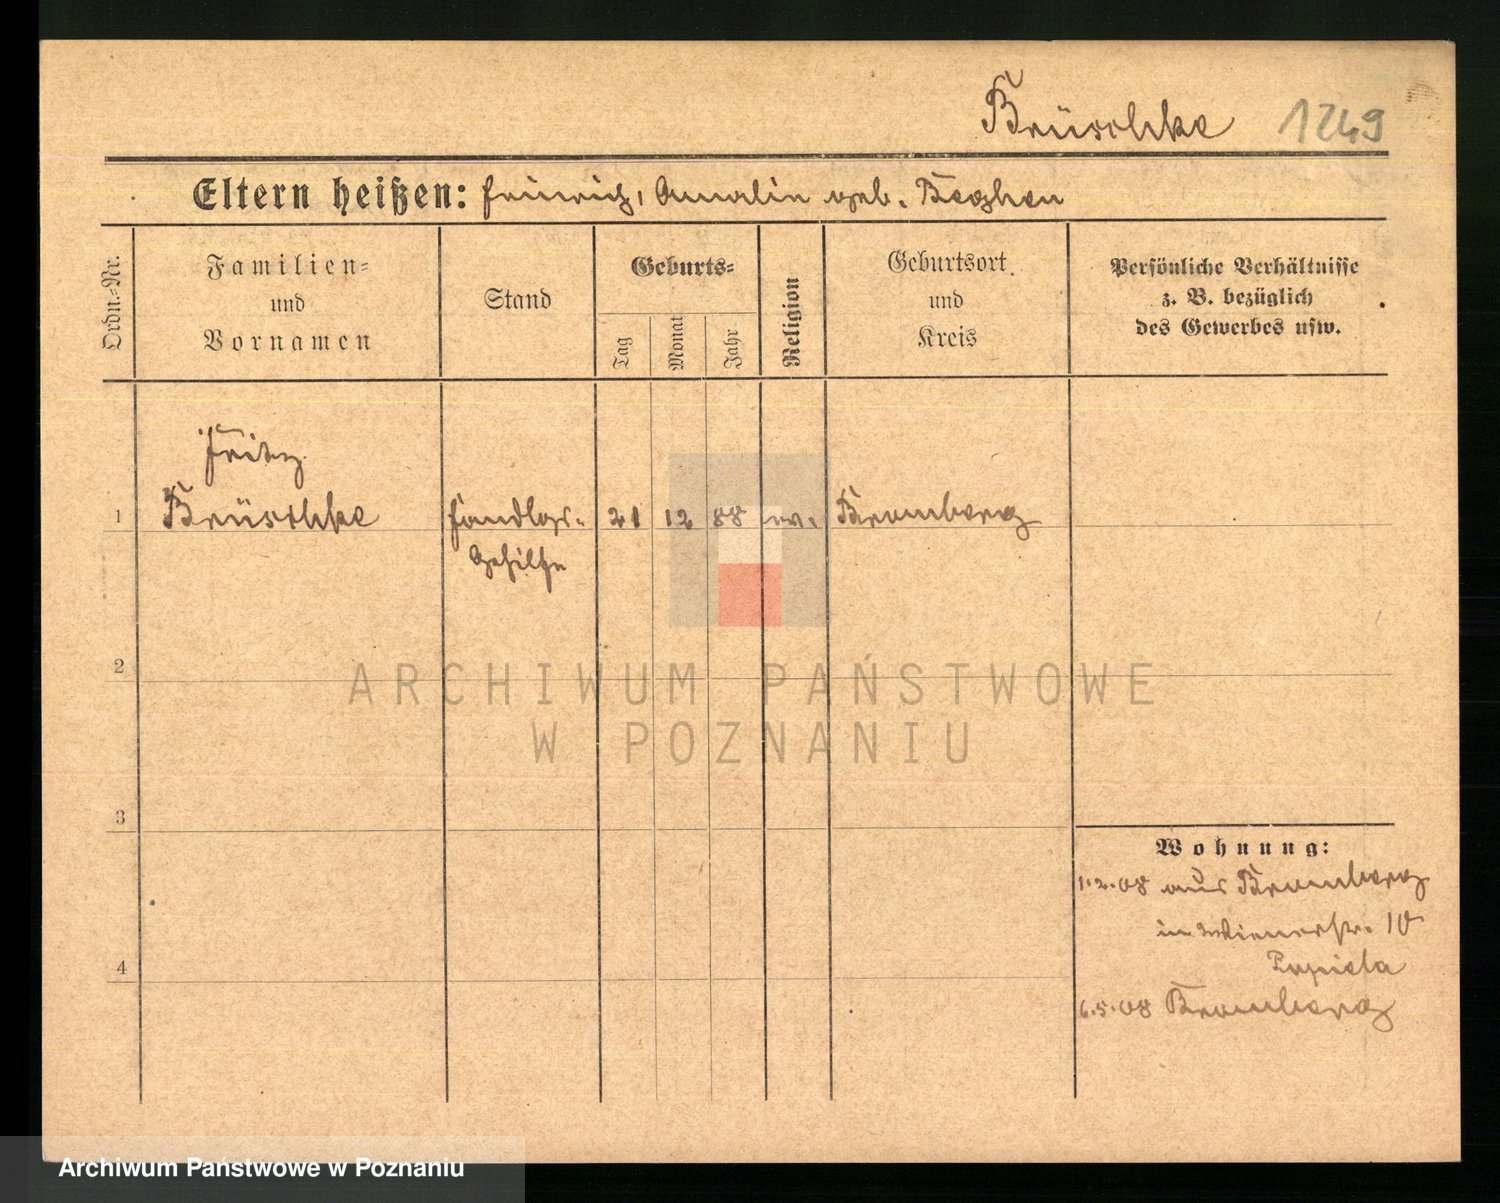 Brüschke 1249
Eltern heißen: Heinrich, Amalie geb. Beghen
Ordn.-Nr.
Familien-
und
Vornamen
Stand
Geburts-
Tag
Monat
Jahr
Religion
Geburtsort
und
Kreis
Persönliche Verhältnisse
z. B. bezüglich
des Gewerbes usw.
Fritz
1 Brüschke Handlgs.- 21 12 88 ev. Bromberg
Gehilfe
2
ARCHIWUM PAŃSTWOWE
W POZNANIU
3
Wohnung:
1.2.08 aus Bromberg
in Wienerstr. 10
4
6.5.08 Bromberg
Archiwum Państwowe w Poznaniu